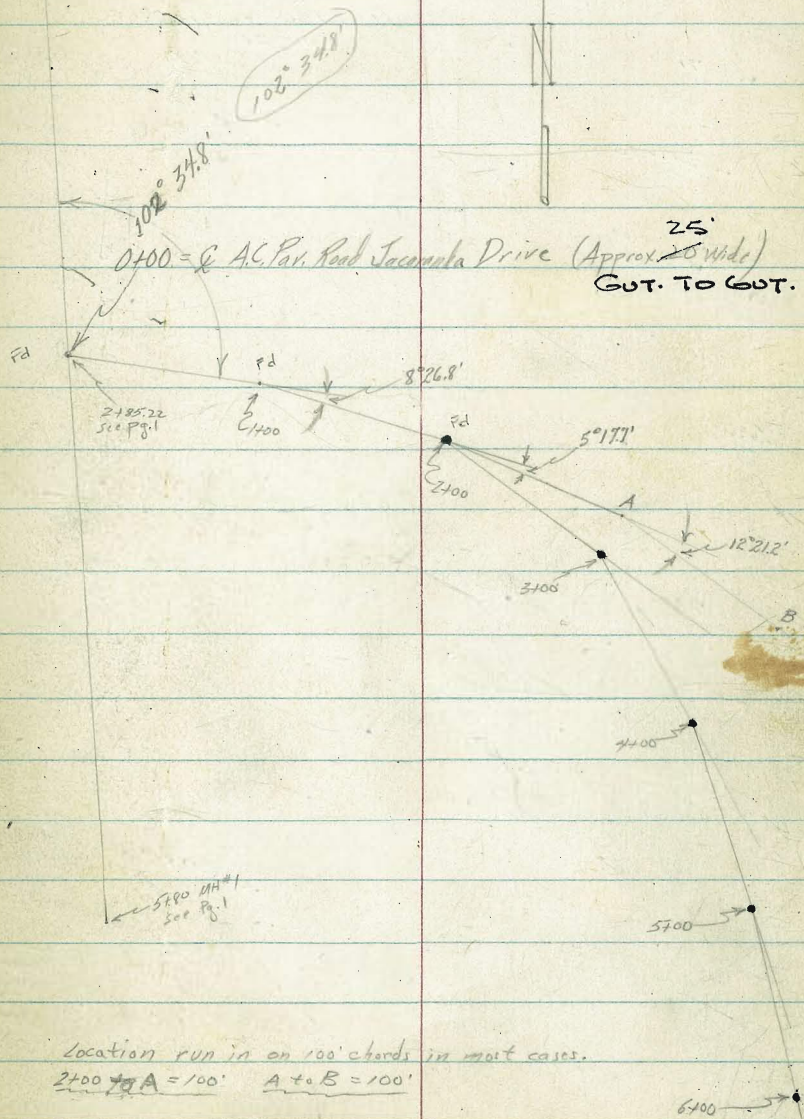 102° 34.8'
N
102° 34.8'
25'
0+00 = ℄ A.C. Pav. Road Jacaranda Drive (Approx. 20 Wide)
GUT. TO GUT.
Fd
Fd
8°26.8'
2+85.22
see Pg.1
1+00
Fd
5°17.7'
2+00
A
12°21.2'
3+00
B
4+00
5+80 MH#1
see Pg.1
5+00
Location run in on 100' chords in most cases.
2+00 to A = 100' A to B = 100'
6+00